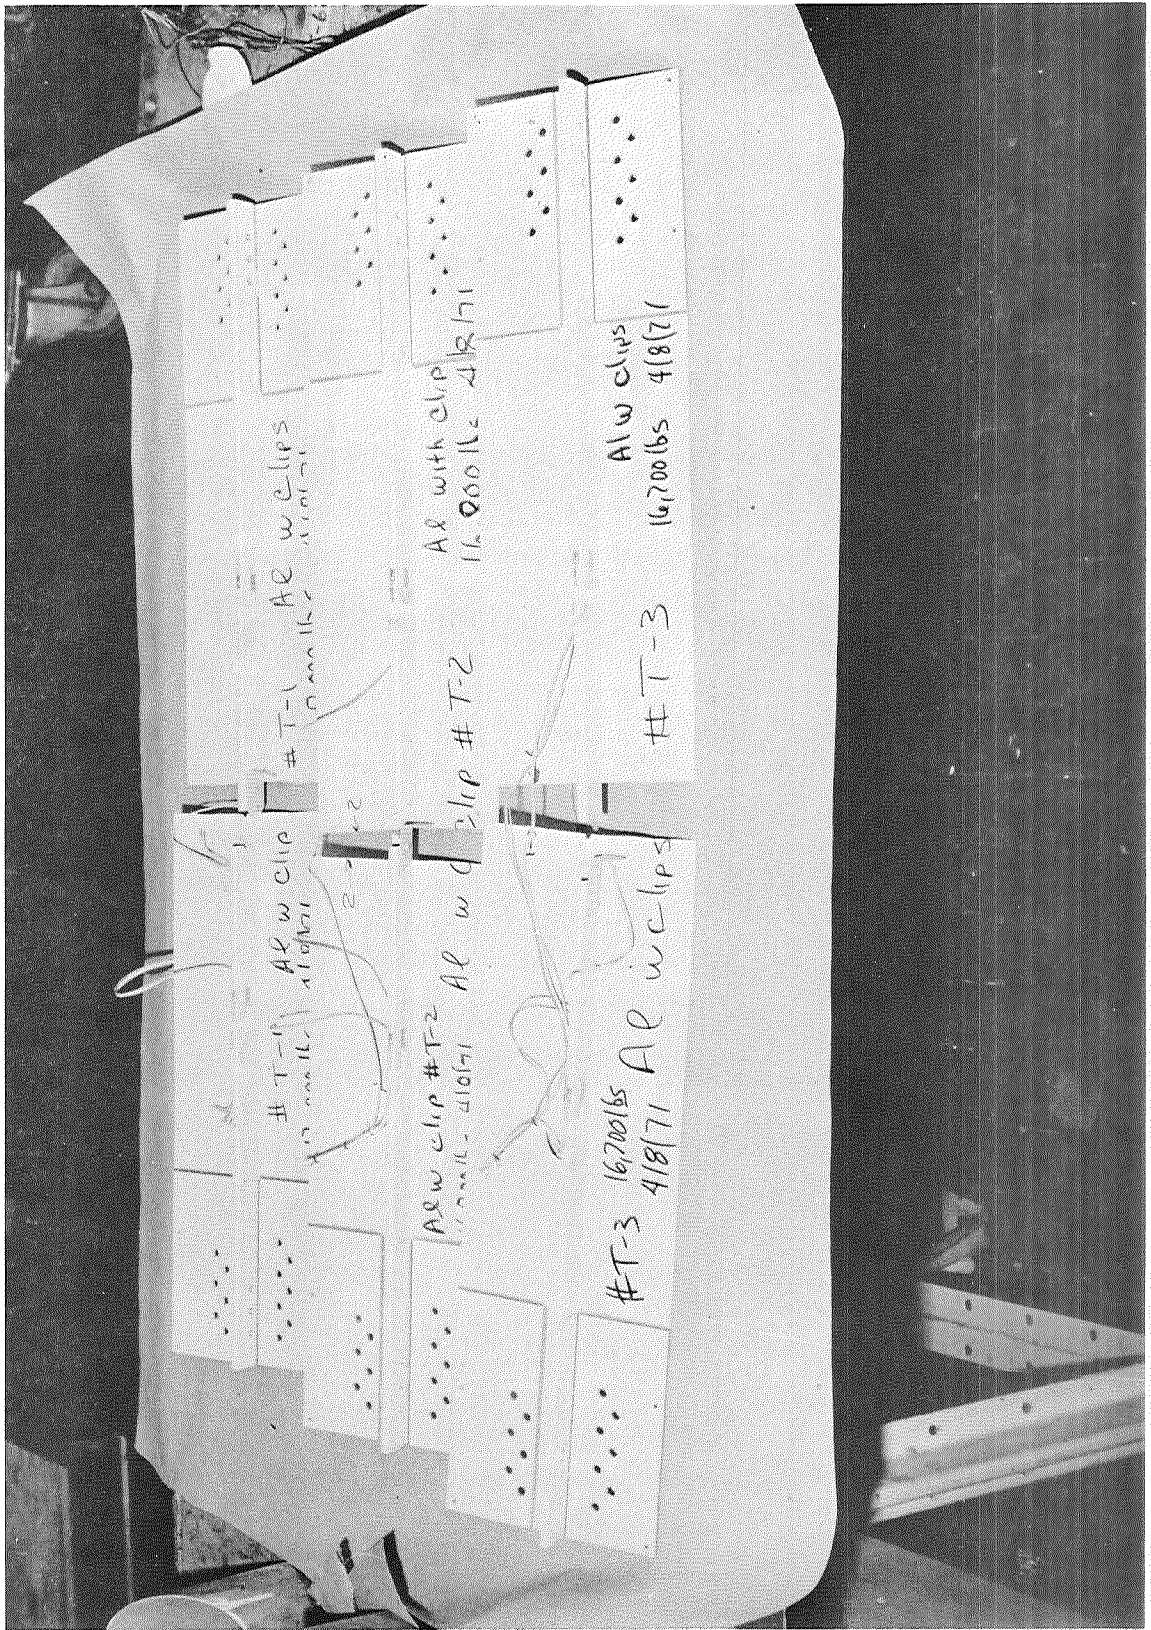 # T-1 Al w clips
Al with clip
4/8/71
Al w clips
16,700 lbs 4/8/71
# T-3
# T-1 Al w clip
Al w clip # T-2
Al w clip # T-2
# T-3 16,700 lbs
4/8/71 Al w clips
2 2